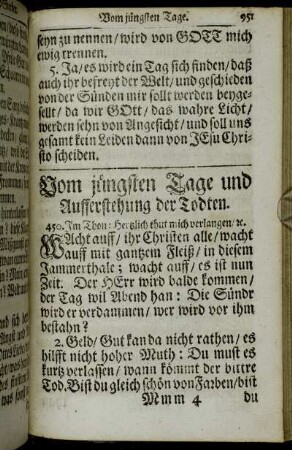 Vom jüngsten Tage. 951
seyn zu nennen / wird von GOTT mich
ewig trennen.
5. Ja / es wird ein Tag sich finden / daß
auch ihr befreyt der Welt / und geschieden
von der Sünden mir sollt werden beyge-
sellt / da wir GOtt / das wahre Licht /
werden sehn von Angesicht / und soll uns
gesamt kein Leiden dann von JEsu Chri-
sto scheiden.
Vom jüngsten Tage und
Aufferstehung der Todten.
450. Im Thon: Hertzlich thut mich verlangen / ꝛc.
WAcht auff / ihr Christen alle / wacht
auff mit gantzem Fleiß / in diesem
Jammerthale; wacht auff / es ist nun
Zeit. Der HErr wird balde kommen /
der Tag wil Abend han: Die Sündr
wird er verdammen / wer wird vor ihm
bestahn?
2. Geld / Gut kan da nicht rathen / es
hilfft nicht hoher Muth: Du must es
kurtz verlassen / wann kömmt der bittre
Tod. Bist du gleich schön von Farben / bist
Mmm 4 du